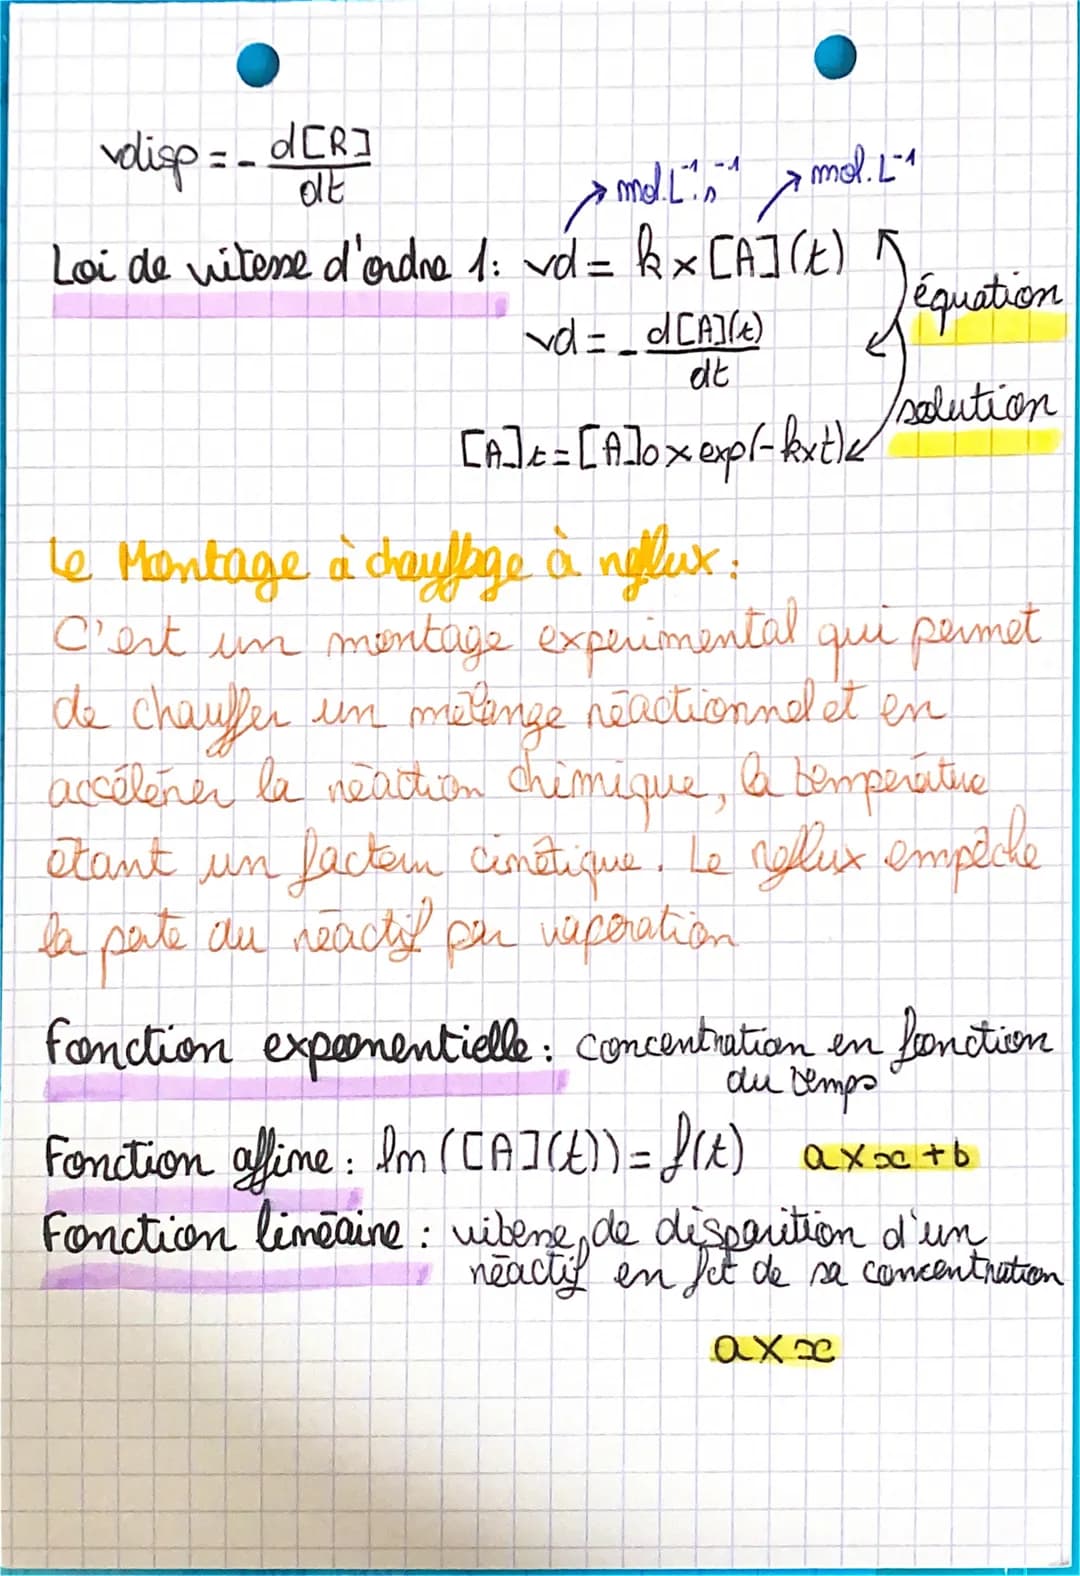 vdisp = - d[R]/dt
mol.L⁻¹.s⁻¹ mol.L⁻¹
Loi de vitesse d'ordre 1: vd = k × [A](t)
équation
vd = - d[A](t)/dt
solution
[A]t = [A]0 × exp(-k×t)
Le Montage à chauffage à reflux :
C'est un montage expérimental qui permet
de chauffer un mélange réactionnel et en
accélérer la réaction chimique, la température
étant un facteur cinétique. Le reflux empêche
la perte du réactif par vaporation
Fonction exponentielle : concentration en fonction
du temps
Fonction affine : ln([A](t)) = f(t) a×x+b
Fonction linéaire : vitesse de disparition d'un
réactif en fct de sa concentration
a×x